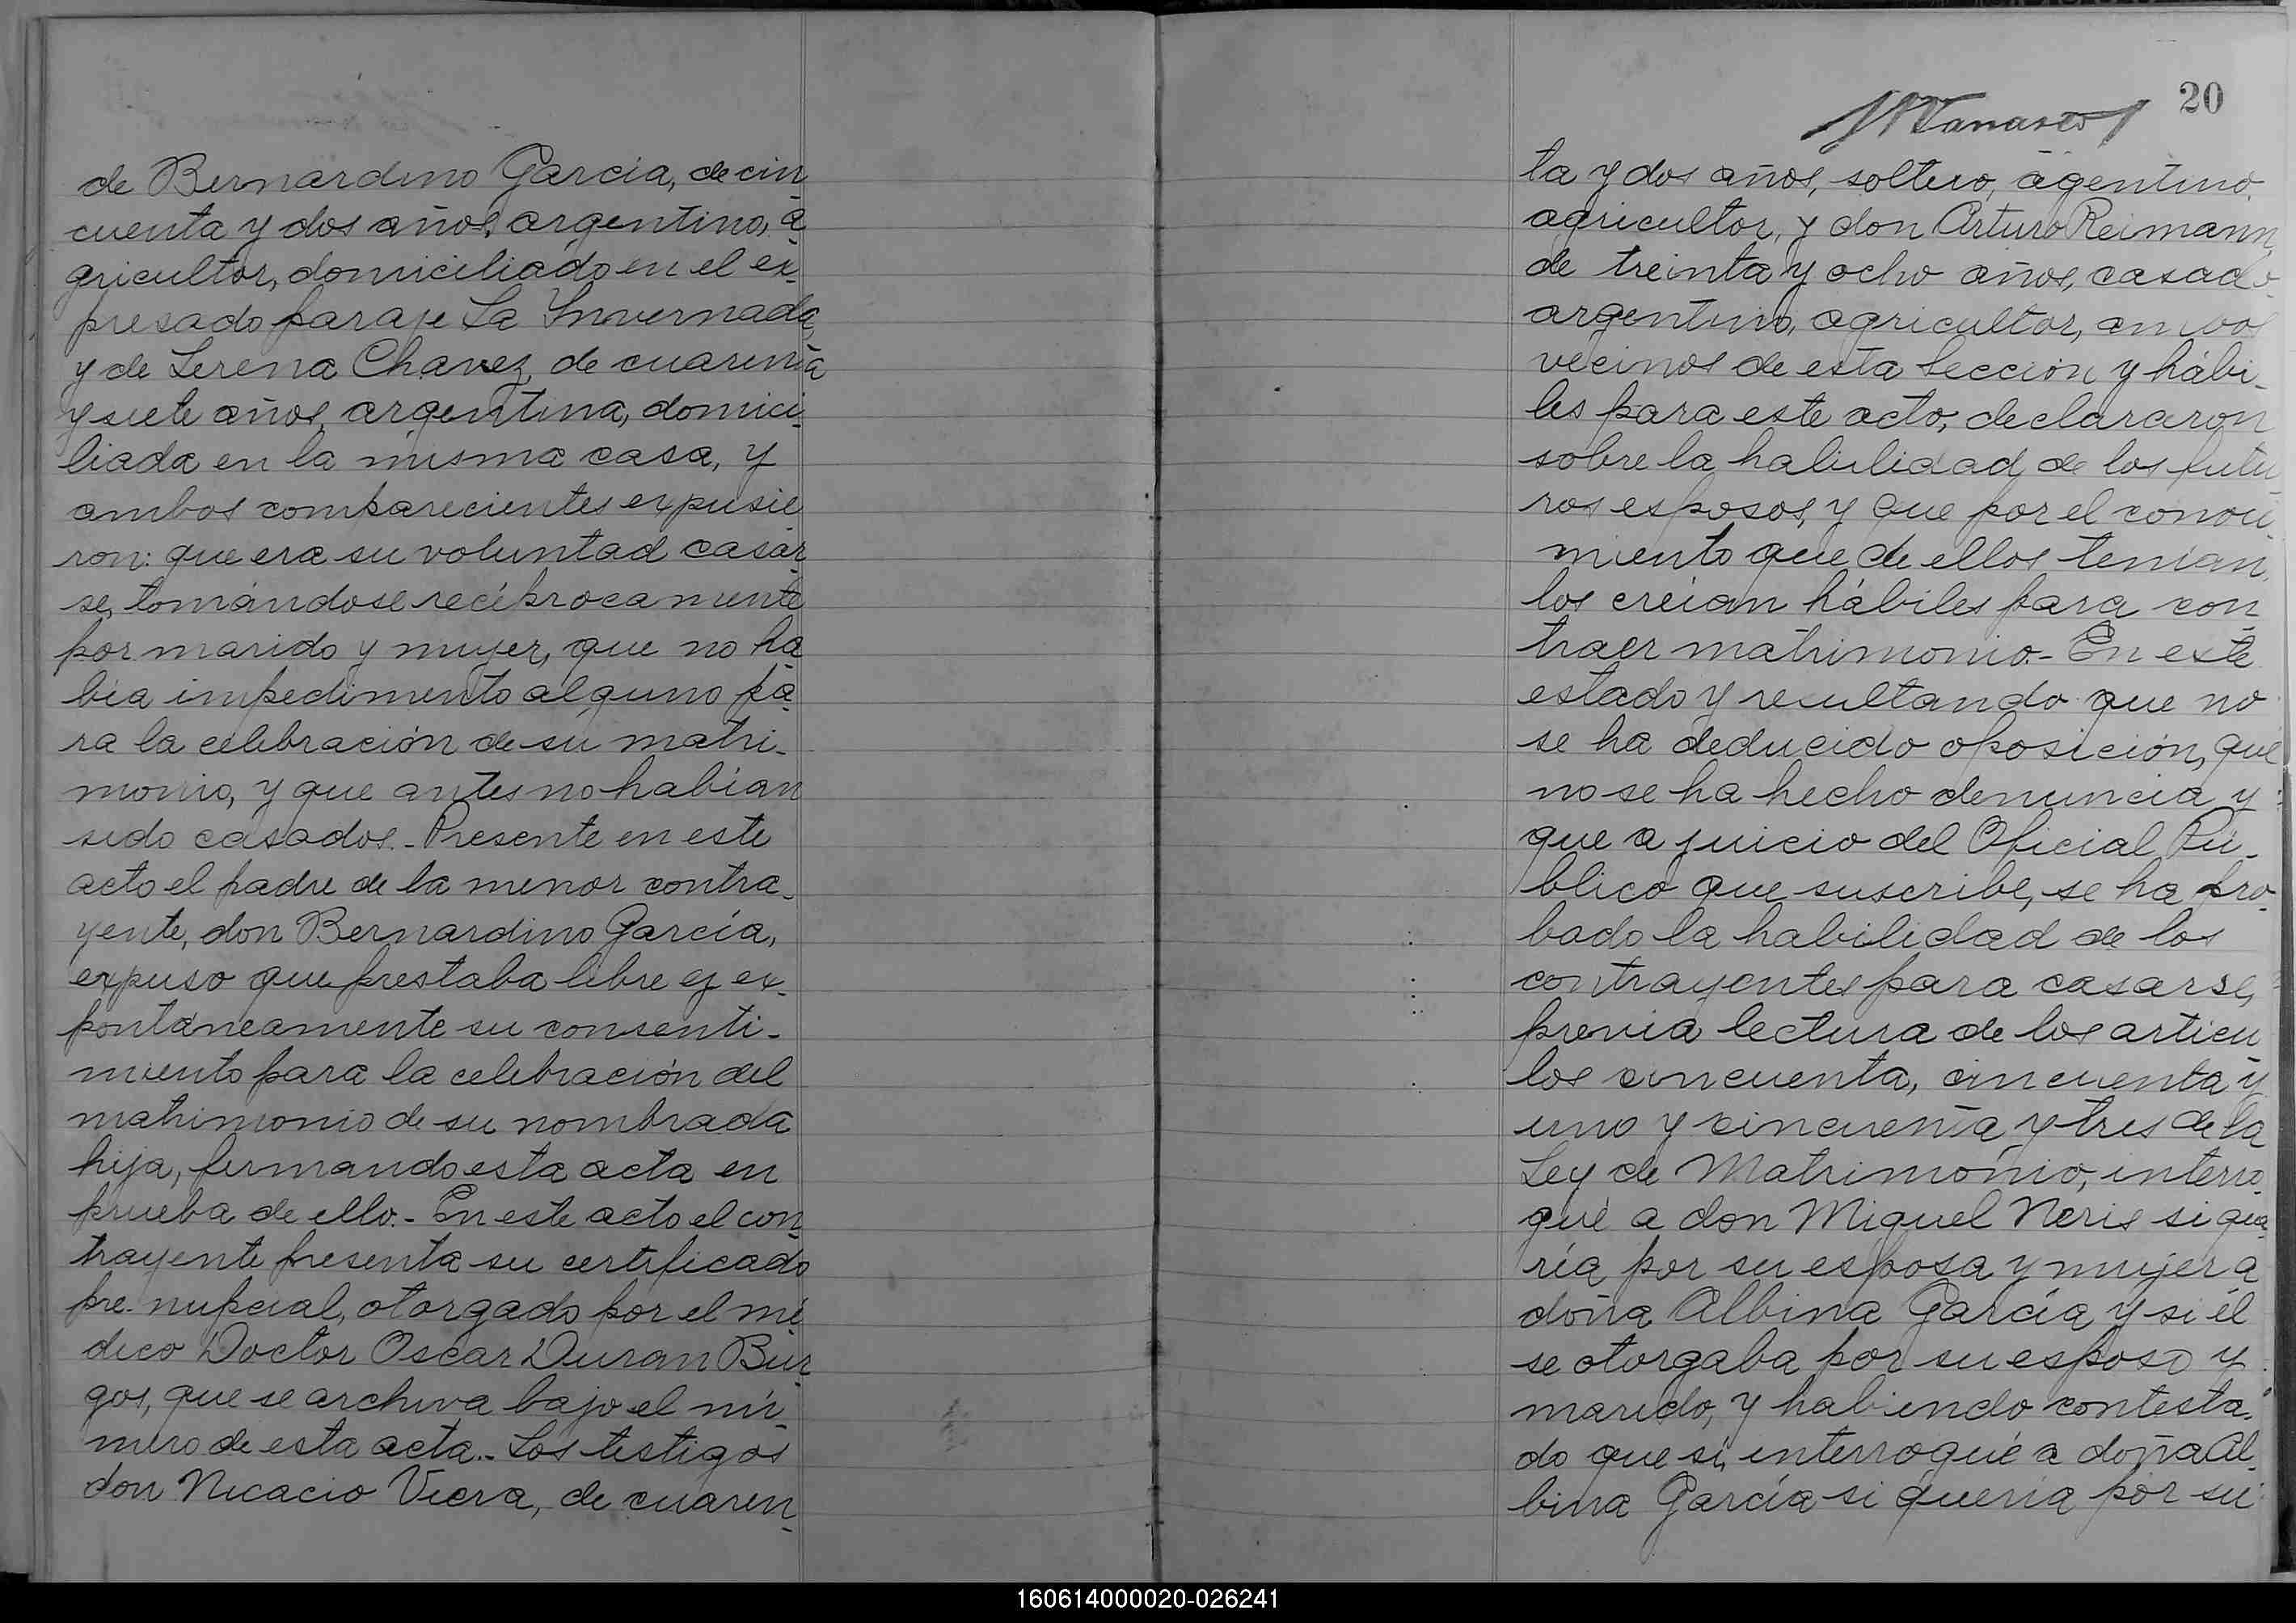 de Bernardino García, de cin
cuenta y dos años, argentino, a
gricultor, domiciliado en el ex
presado paraje La Invernada,
y de Serena Chavez, de cuarenta
y siete años, argentina, domici
liada en la misma casa, y
ambos comparecientes expusie
ron: que era su voluntad casar
se, tomándose recíprocamente
por marido y mujer, que no ha
bía impedimento alguno pa
ra la celebración de su matri-
monio, y que antes no habían
sido casados.- Presente en este
acto el padre de la menor contra-
yente, don Bernardino García,
expuso que prestaba libre y ex-
pontáneamente su consenti-
miento para la celebración del
matrimonio de su nombrada
hija, firmando esta acta en
prueba de ello.- En este acto el con
trayente presenta su certificado
pre-nupcial, otorgado por el mé
dico Doctor Oscar Duran Bur
gos, que se archiva bajo el nú-
mero de esta acta.- Los testigos
don Nicacio Viera, de cuaren
20
ta y dos años, soltero, agentino,
agricultor, y don Arturo Reimann,
de treinta y ocho años, casado
argentino, agricultor, ambos
vecinos de esta Sección y hábi-
les para este acto, declararon
sobre la habilidad de los futu
ros esposos, y que por el conoci
miento que de ellos tenían,
los creían hábiles para con
traer matrimonio.- En este
estado y resultando que no
se ha deducido oposición, que
no se ha hecho denuncia y
que a juicio del Oficial Pú-
blico que suscribe, se ha pro
bado la habilidad de los
contrayentes para casarse,
previa lectura de los artícu
los cincuenta, cincuenta y
uno y cincuenta y tres de la
Ley de Matrimonio, interro
gué a don Miguel Neris si que
ría por su esposa y mujer a
doña Albina García y si él
se otorgaba por su esposo y
marido, y habiendo contesta-
do que sí, interrogué a doña Al
bina García si quería por su
160614000020-026241